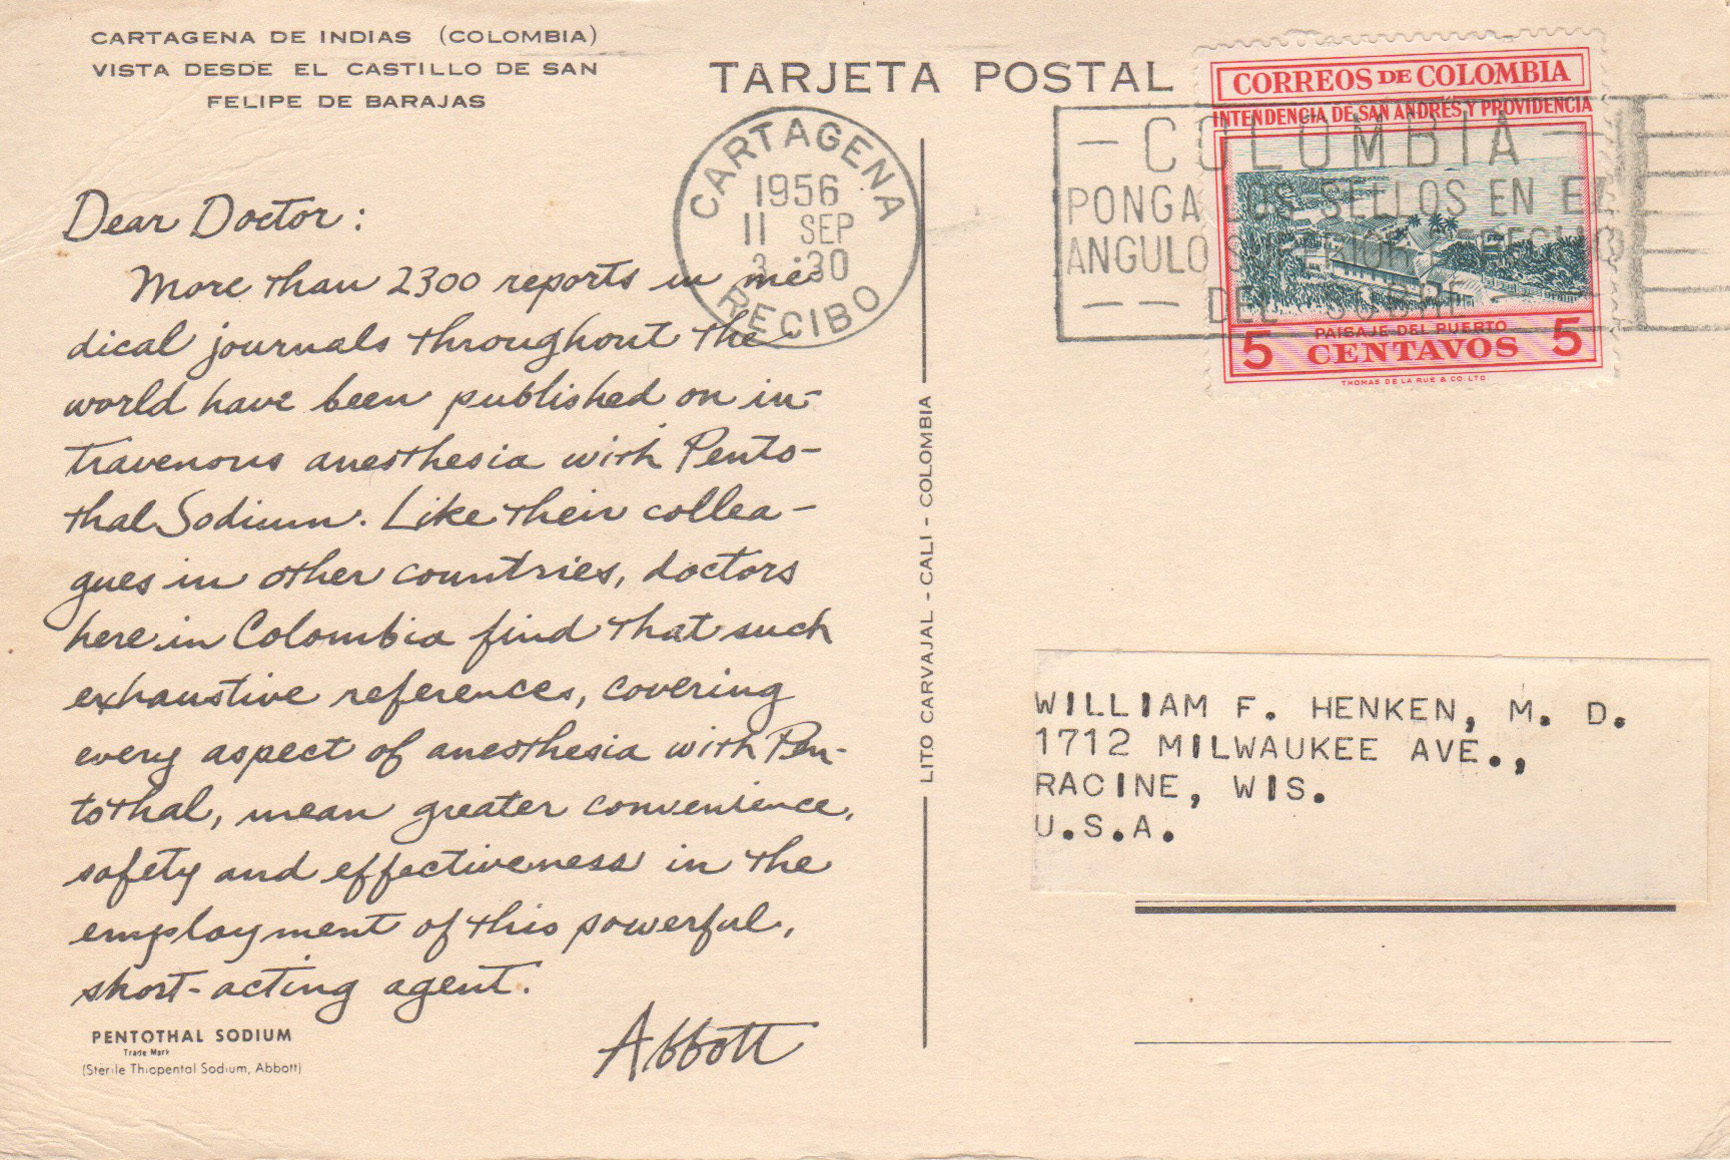 CARTAGENA DE INDIAS (COLOMBIA)
VISTA DESDE EL CASTILLO DE SAN
FELIPE DE BARAJAS
TARJETA POSTAL
CARTAGENA
1956
11 SEP
3:30
RECIBO
COLOMBIA
PONGA LOS SELLOS EN EL
ANGULO SUPERIOR DERECHO
DEL SOBRE
CORREOS DE COLOMBIA
INTENDENCIA DE SAN ANDRÉS Y PROVIDENCIA
PAISAJE DEL PUERTO
5 CENTAVOS 5
THOMAS DE LA RUE & CO LTD
Dear Doctor:
More than 2300 reports in me-
dical journals throughout the
world have been published on in-
travenous anesthesia with Pento-
thal Sodium. Like their collea-
gues in other countries, doctors
here in Colombia find that such
exhaustive references, covering
every aspect of anesthesia with Pen-
tothal, mean greater convenience,
safety and effectiveness in the
employment of this powerful,
short-acting agent.
Abbott
PENTOTHAL SODIUM
Trade Mark
(Sterile Thiopental Sodium, Abbott)
LITO CARVAJAL - CALI - COLOMBIA
WILLIAM F. HENKEN, M. D.
1712 MILWAUKEE AVE.,
RACINE, WIS.
U.S.A.